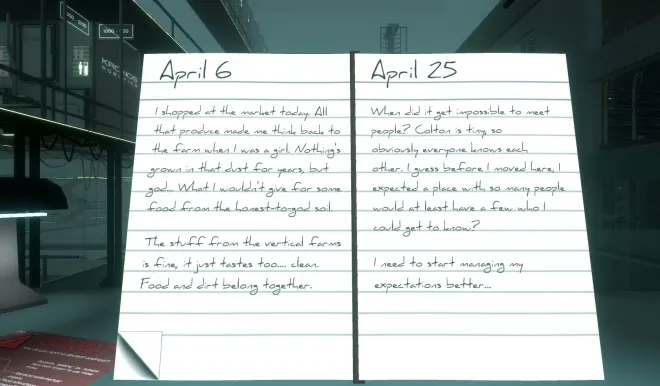 KRONOS
April 6
I shopped at the market today. All
that produce made me think back to
the farm when I was a girl. Nothing's
grown in that dust for years, but
god... What I wouldn't give for some
food from the honest-to-god soil.
The stuff from the vertical farms
is fine, it just tastes too.... clean.
Food and dirt belong together.
April 25
When did it get impossible to meet
people? Colton is tiny, so
obviously everyone knows each
other. I guess before I moved here, I
expected a place with so many people
would at least have a few who I
could get to know?
I need to start managing my
expectations better...